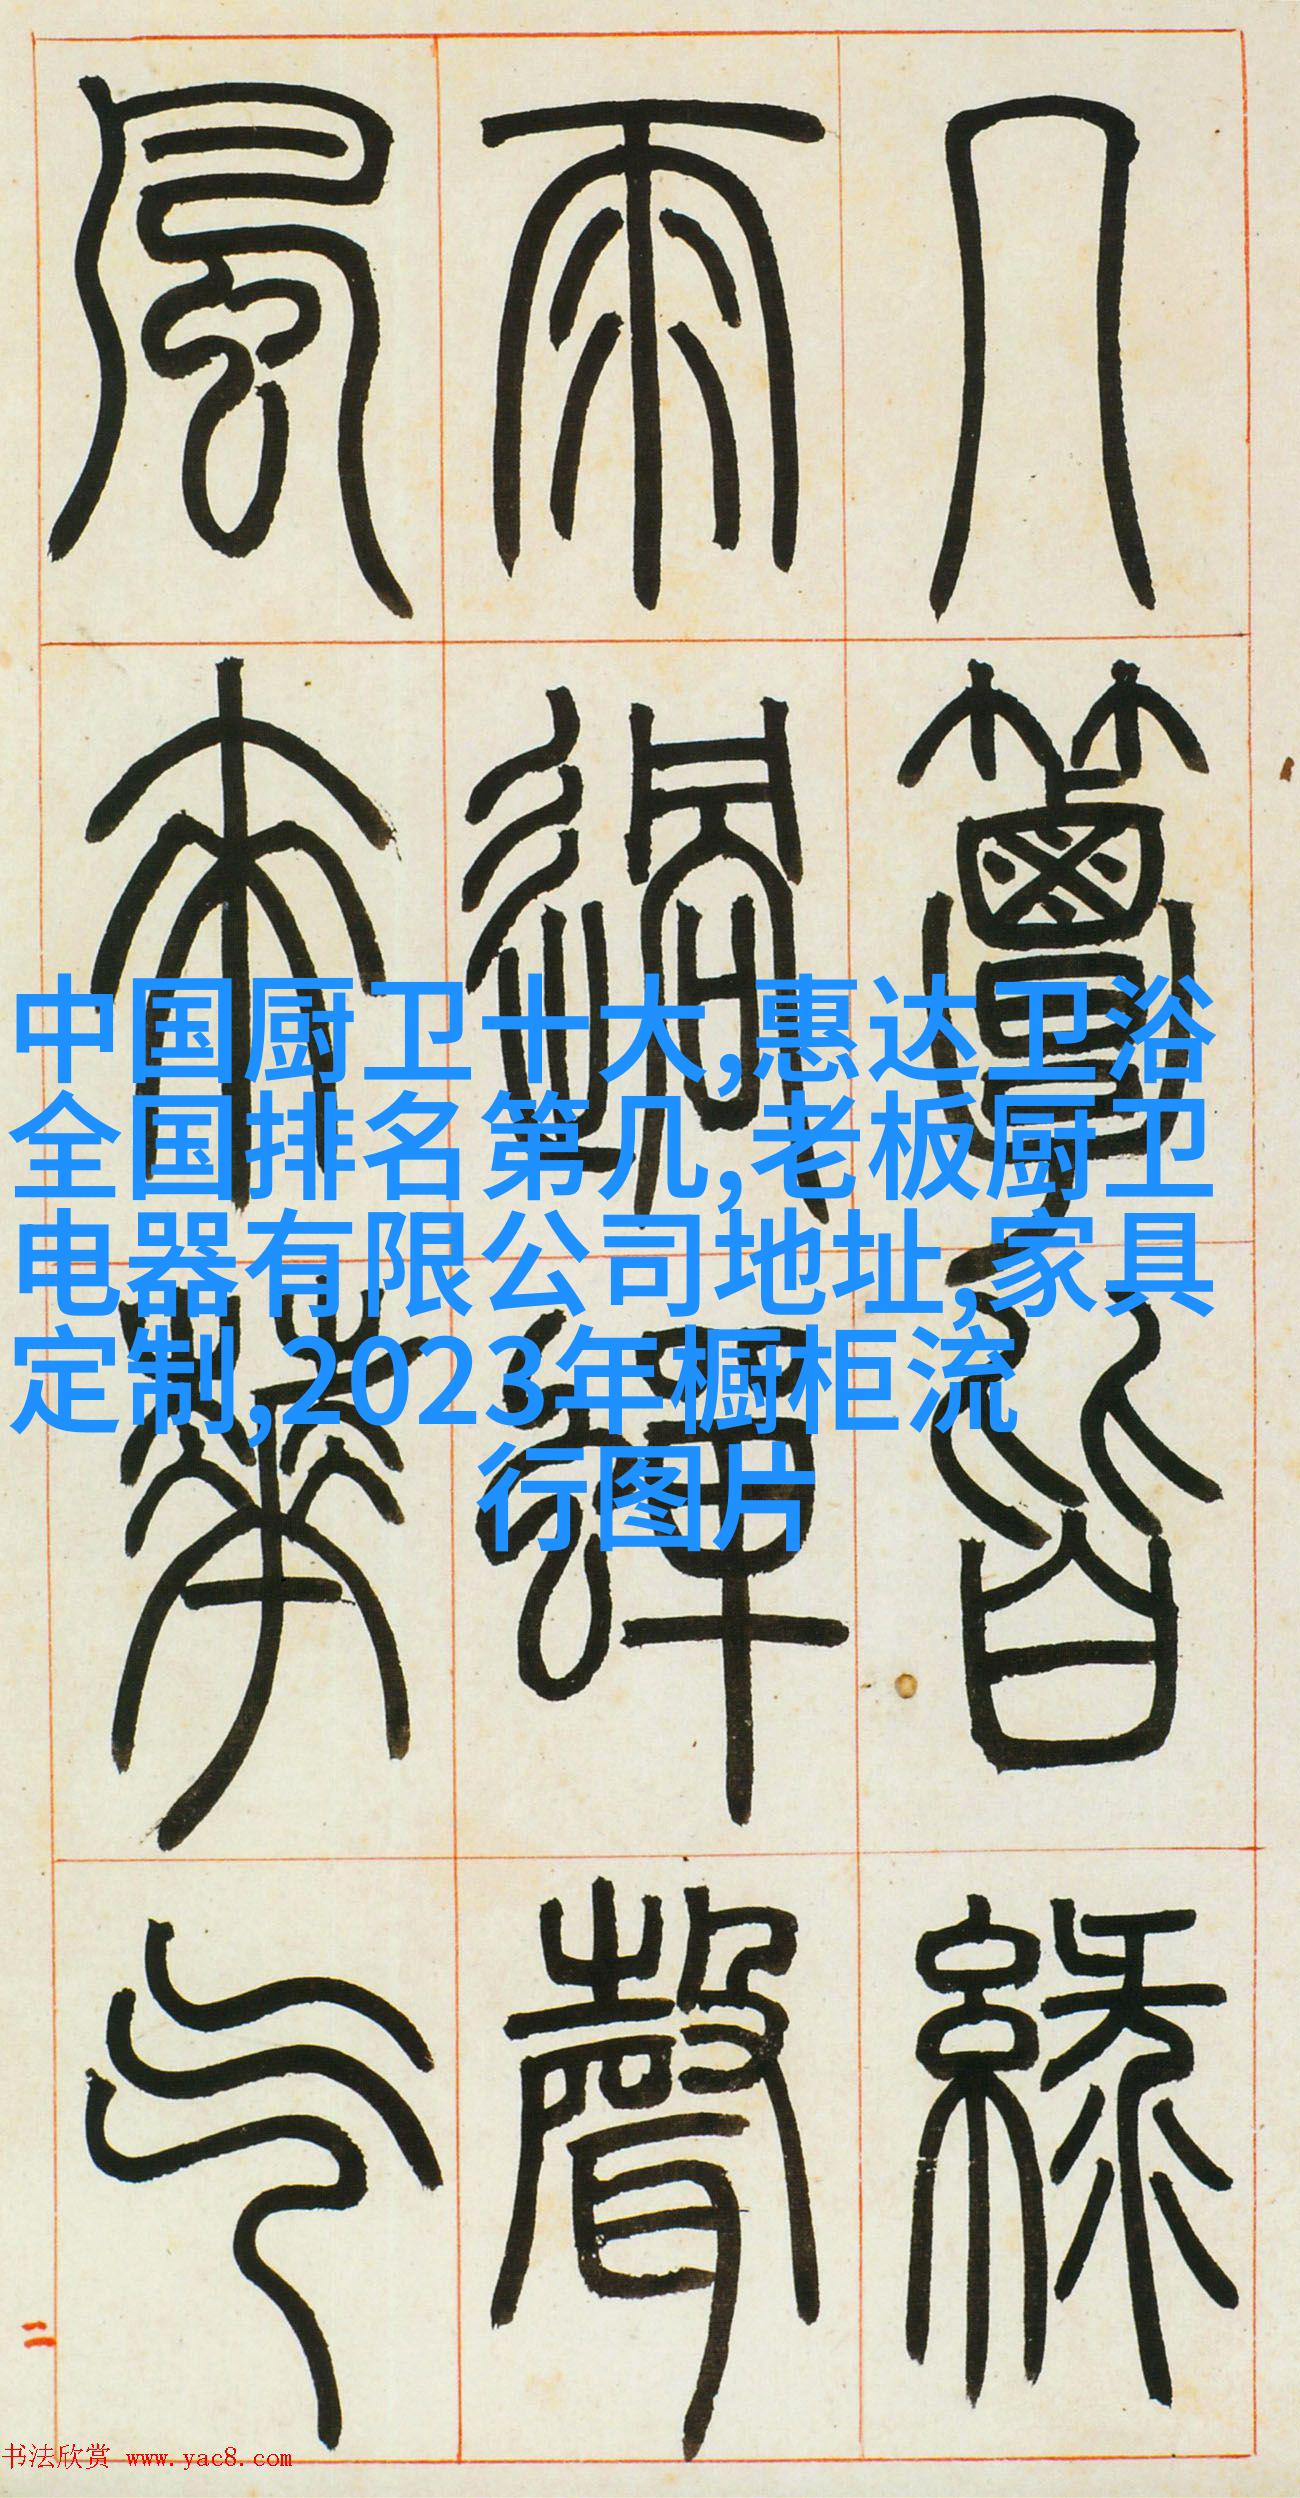 几簟皆綠
雨過蟬聲
風來華气
中国厨卫十大,惠达卫浴
全国排名第几,老板厨卫
电器有限公司地址,家具
定制,2023年橱柜流
行图片
二
书法欣赏 www.yac8.com